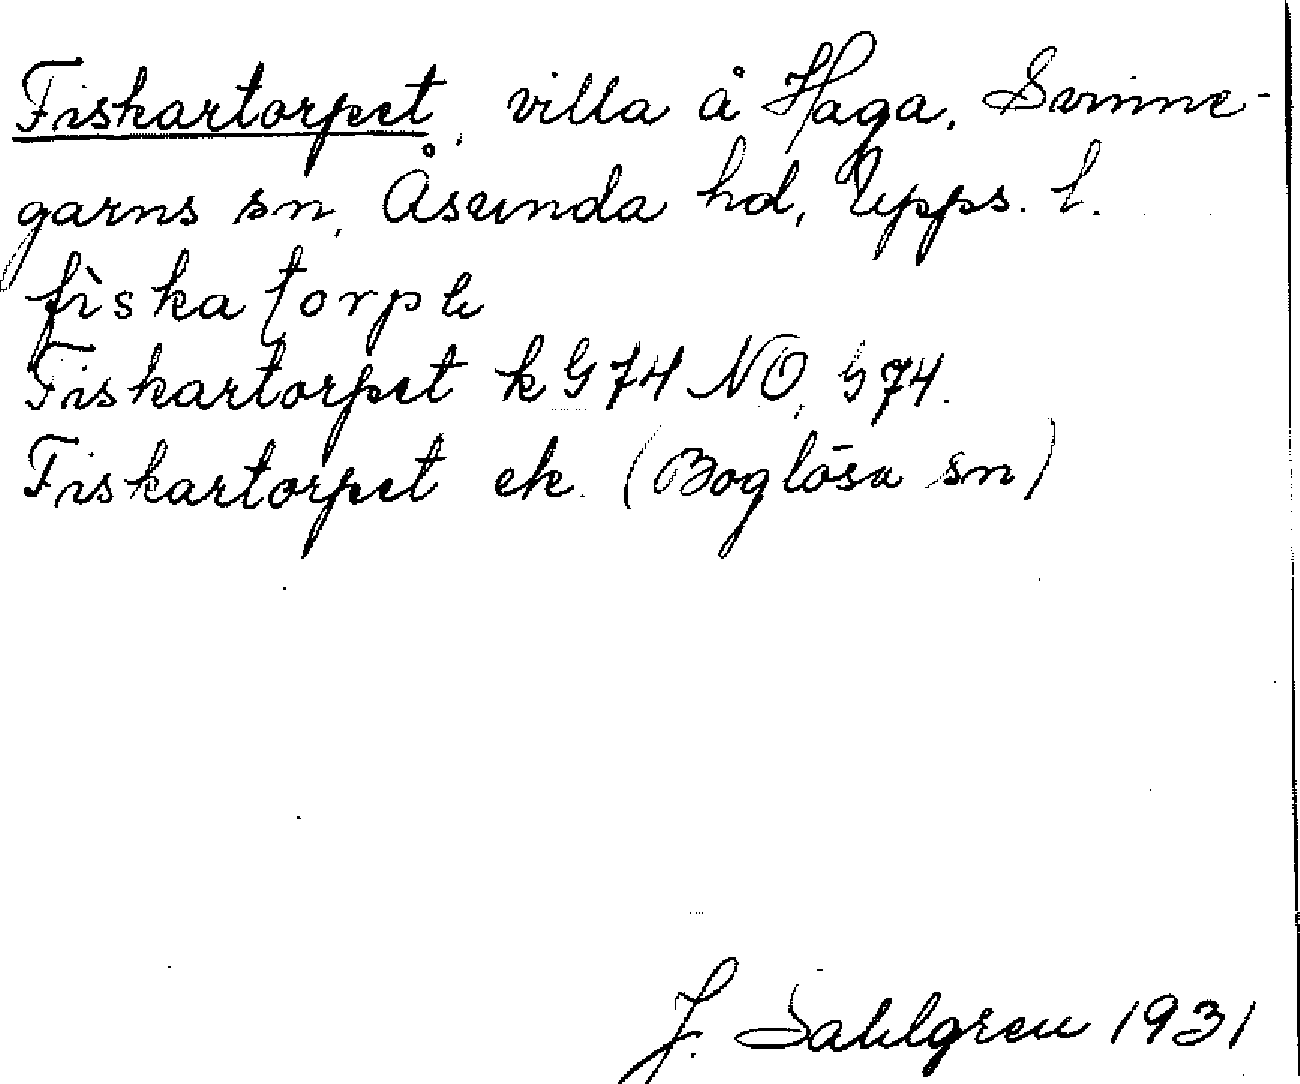 Fiskartorpet, villa å Haga, Svinne-
garns sn, Åsunda hd, Upps. l.
fiska torp
Fiskartorpet k G 74 NO, 974.
Fiskartorpet ek. (Boglösa sn)
J. Sahlgren 1931